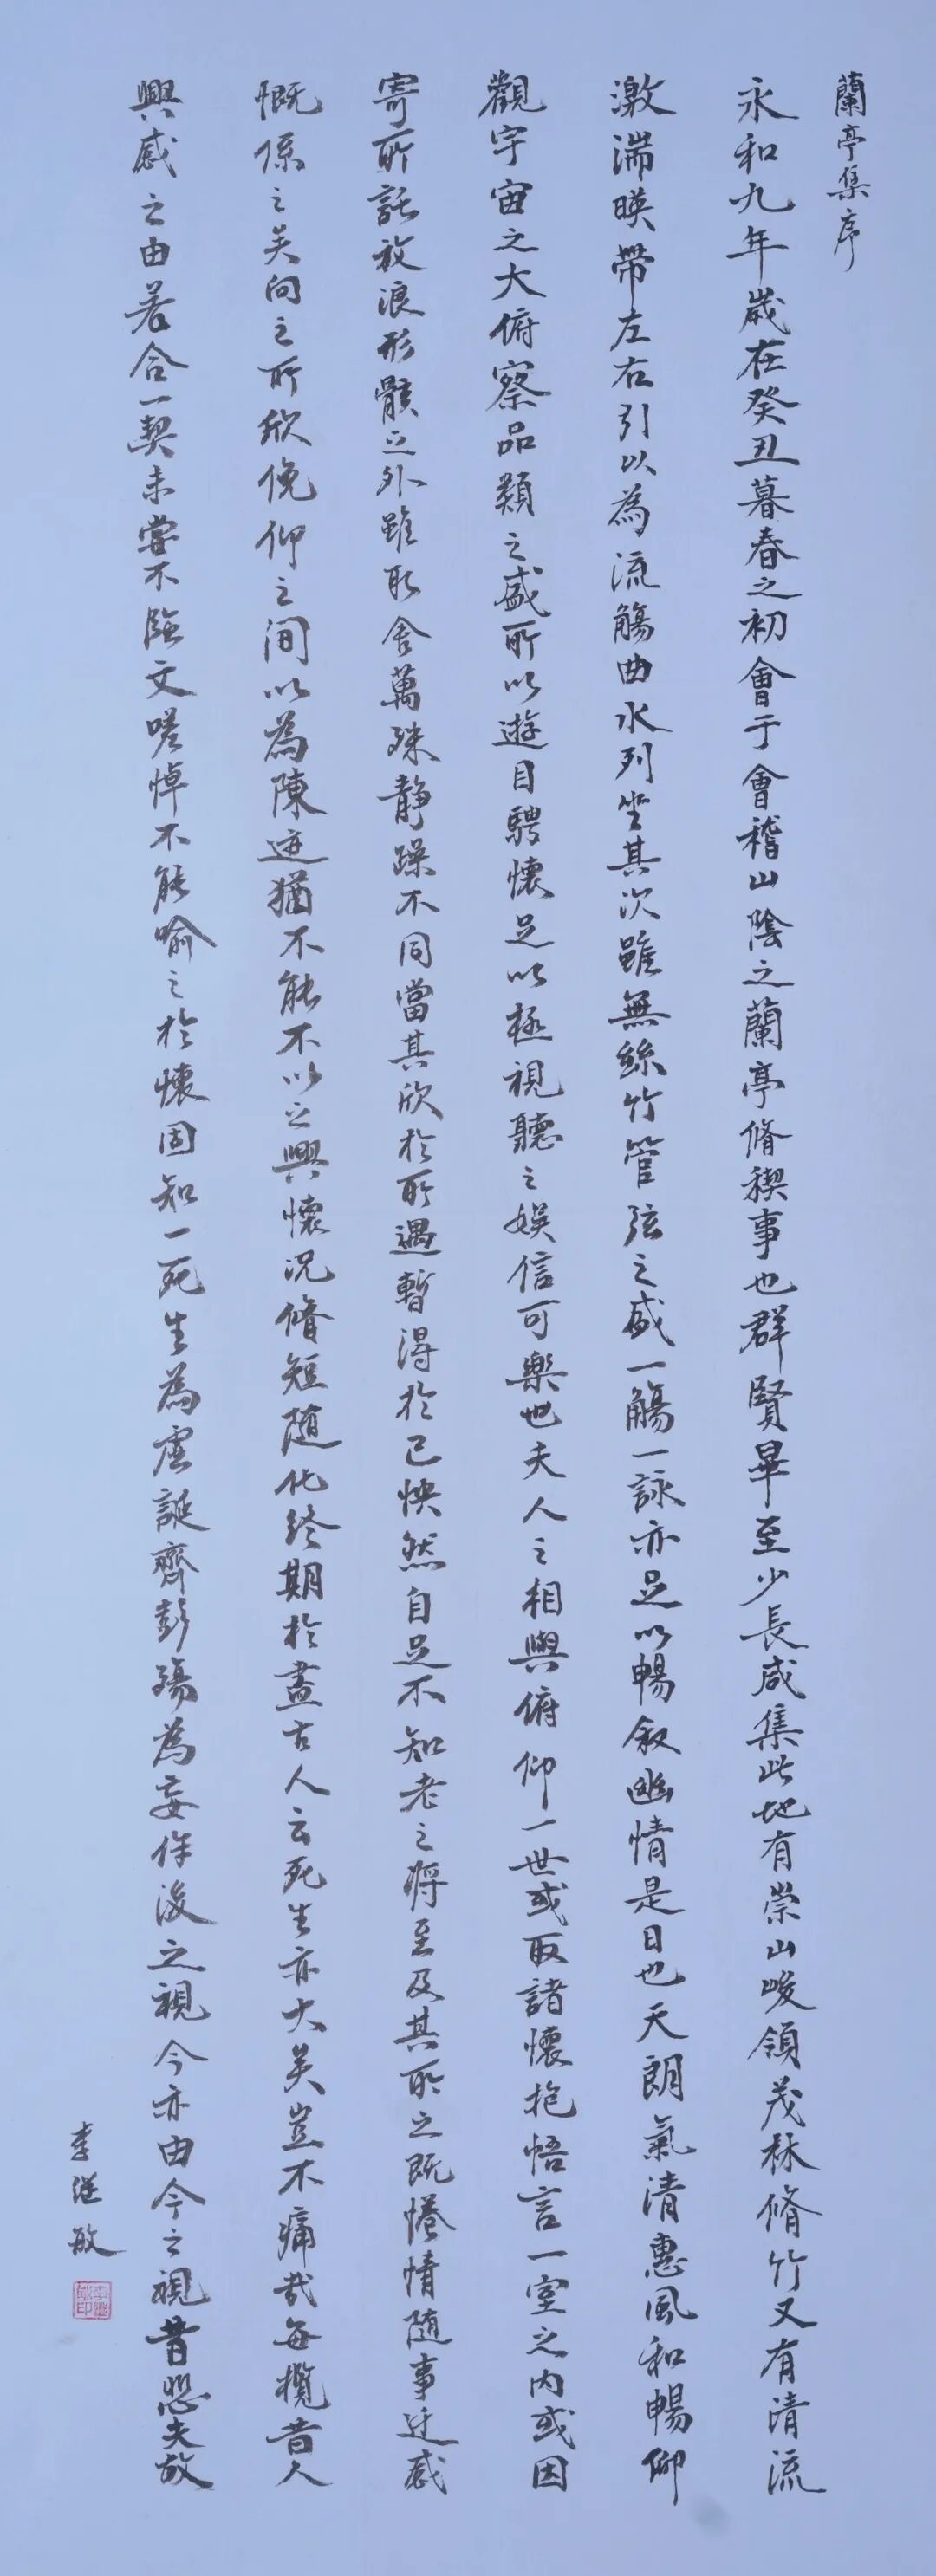 蘭亭集序
永和九年歲在癸丑暮春之初會于會稽山陰之蘭亭脩稧事也群賢畢至少長咸集此地有崇山峻領茂林脩竹又有清流
激湍暎帶左右引以為流觴曲水列坐其次雖無絲竹管弦之盛一觴一詠亦足以暢叙幽情是日也天朗氣清惠風和暢仰
觀宇宙之大俯察品類之盛所以遊目騁懷足以極視聽之娛信可樂也夫人之相與俯仰一世或取諸懷抱悟言一室之內或因
寄所託放浪形骸之外雖取舍萬殊靜躁不同當其欣於所遇暫得於己怏然自足不知老之將至及其所之既惓情隨事遷感
慨係之矣向之所欣俛仰之間以為陳迹猶不能不以之興懷況脩短隨化終期於盡古人云死生亦大矣豈不痛哉每攬昔人
興感之由若合一契未嘗不臨文嗟悼不能喻之於懷固知一死生為虛誕齊彭殤為妄作後之視今亦由今之視昔悲夫故
李繼敏